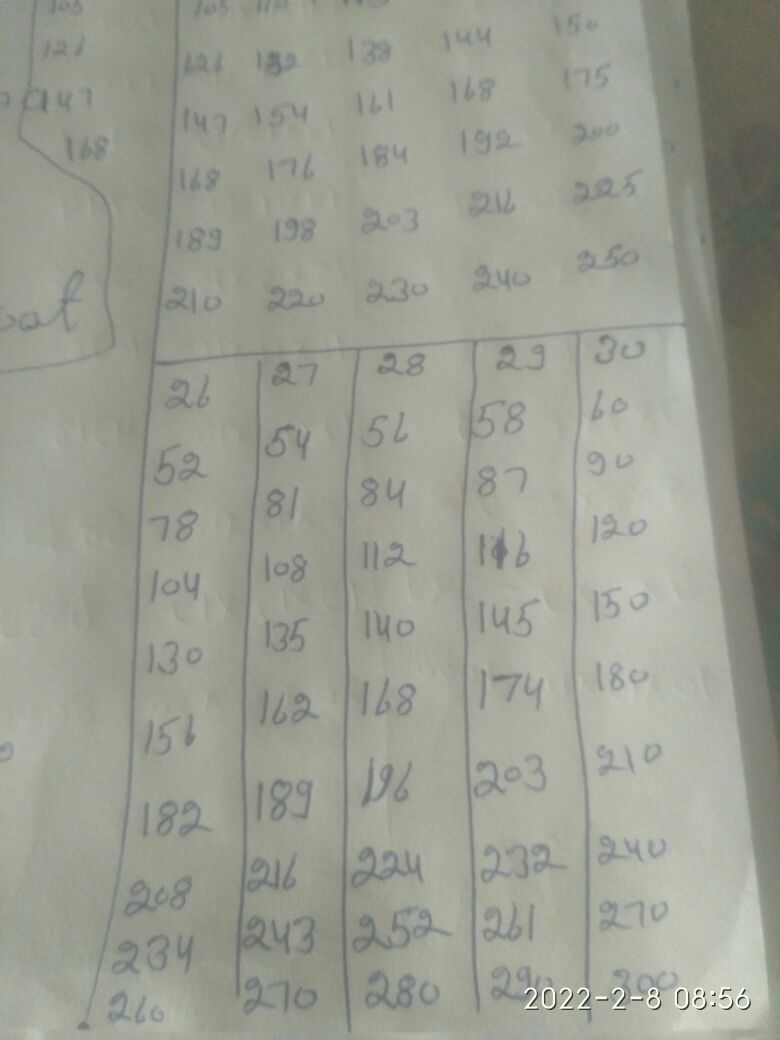 105 105 110
126 126 132 138 144 150
147 147 154 161 168 175
168 168 176 184 192 200
189 198 203 216 225
210 220 230 240 250
26 27 28 29 30
52 54 56 58 60
78 81 84 87 90
104 108 112 116 120
130 135 140 145 150
156 162 168 174 180
182 189 196 203 210
208 216 224 232 240
234 243 252 261 270
260 270 280 290 300
2022-2-8 08:56